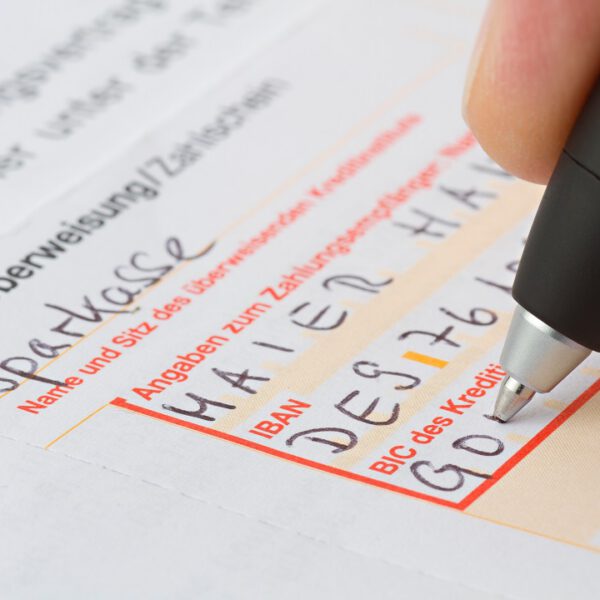 unter der
Überweisung/Zahlschein
Sparkasse
Name und Sitz des überweisenden Kreditinstituts
Angaben zum Zahlungsempfänger:
MAIER
IBAN
DE91 76
BIC des
GO